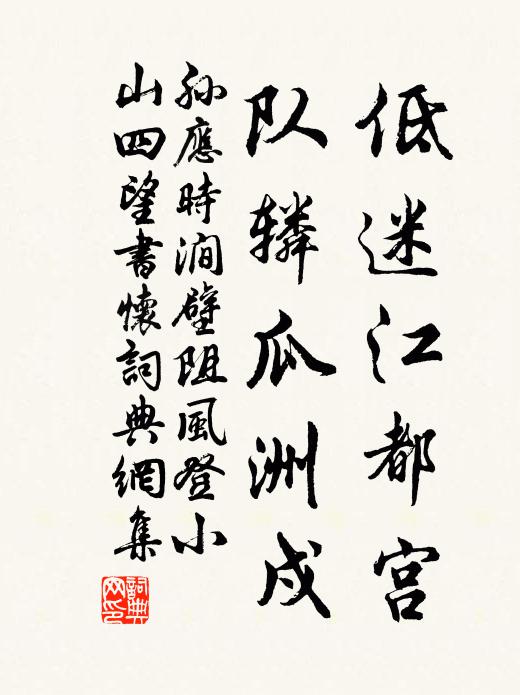 低迷江都宫
队辚瓜洲戍
孫應時澗壁阻風登小
山四望書懷詞典網集
詞典网印